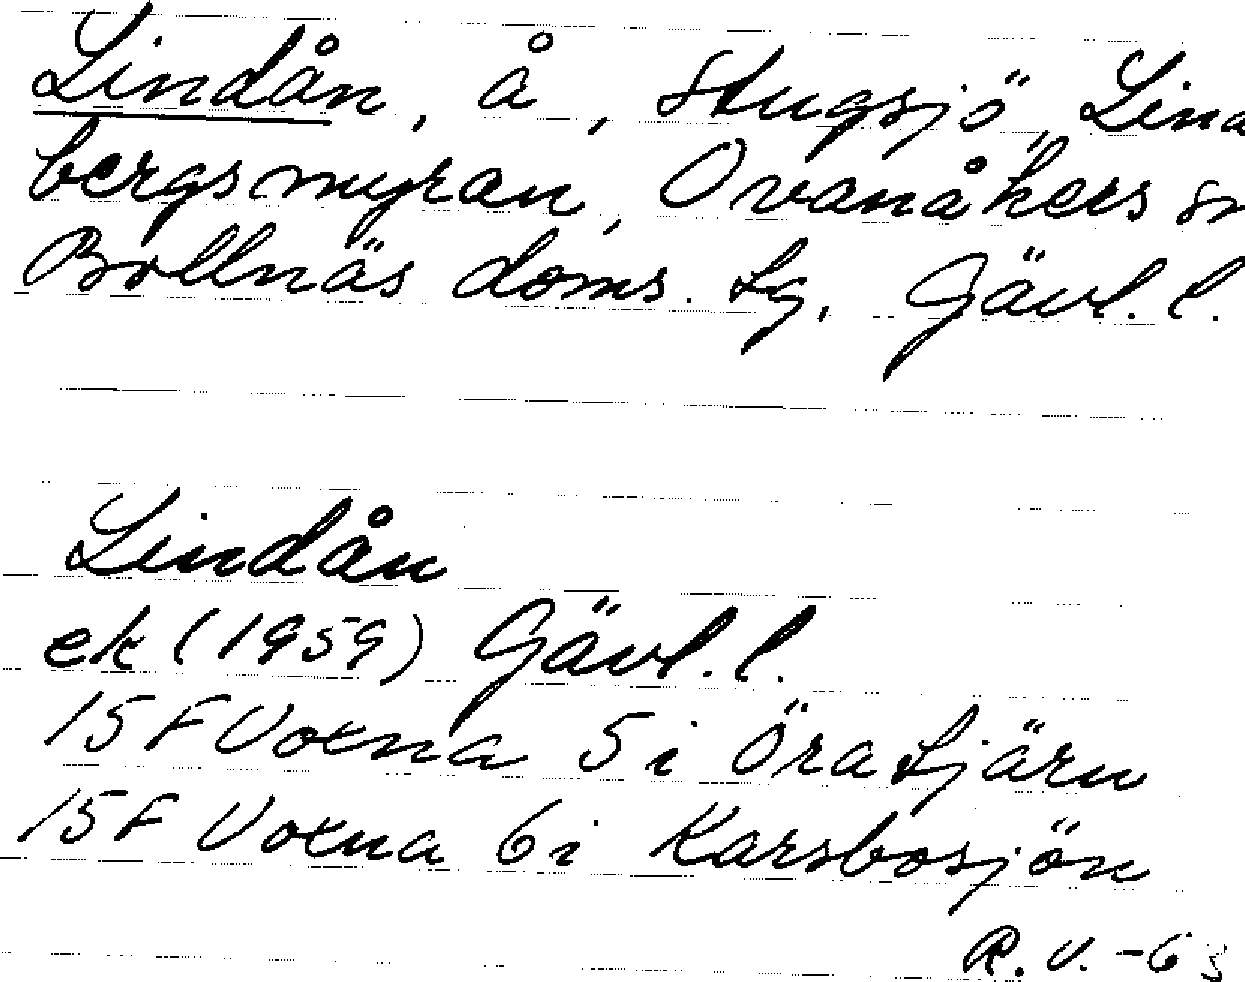 Lindån, å, Stugsjö, Lina
bergsmyran, Ovanåkers sn
Bollnäs doms. tg, Gävl. l.
Lindån
ek (1959) Gävl. l.
15F Voxna 5i Öratjärn
15F Voxna 6i Karsbosjön
R. V. -63